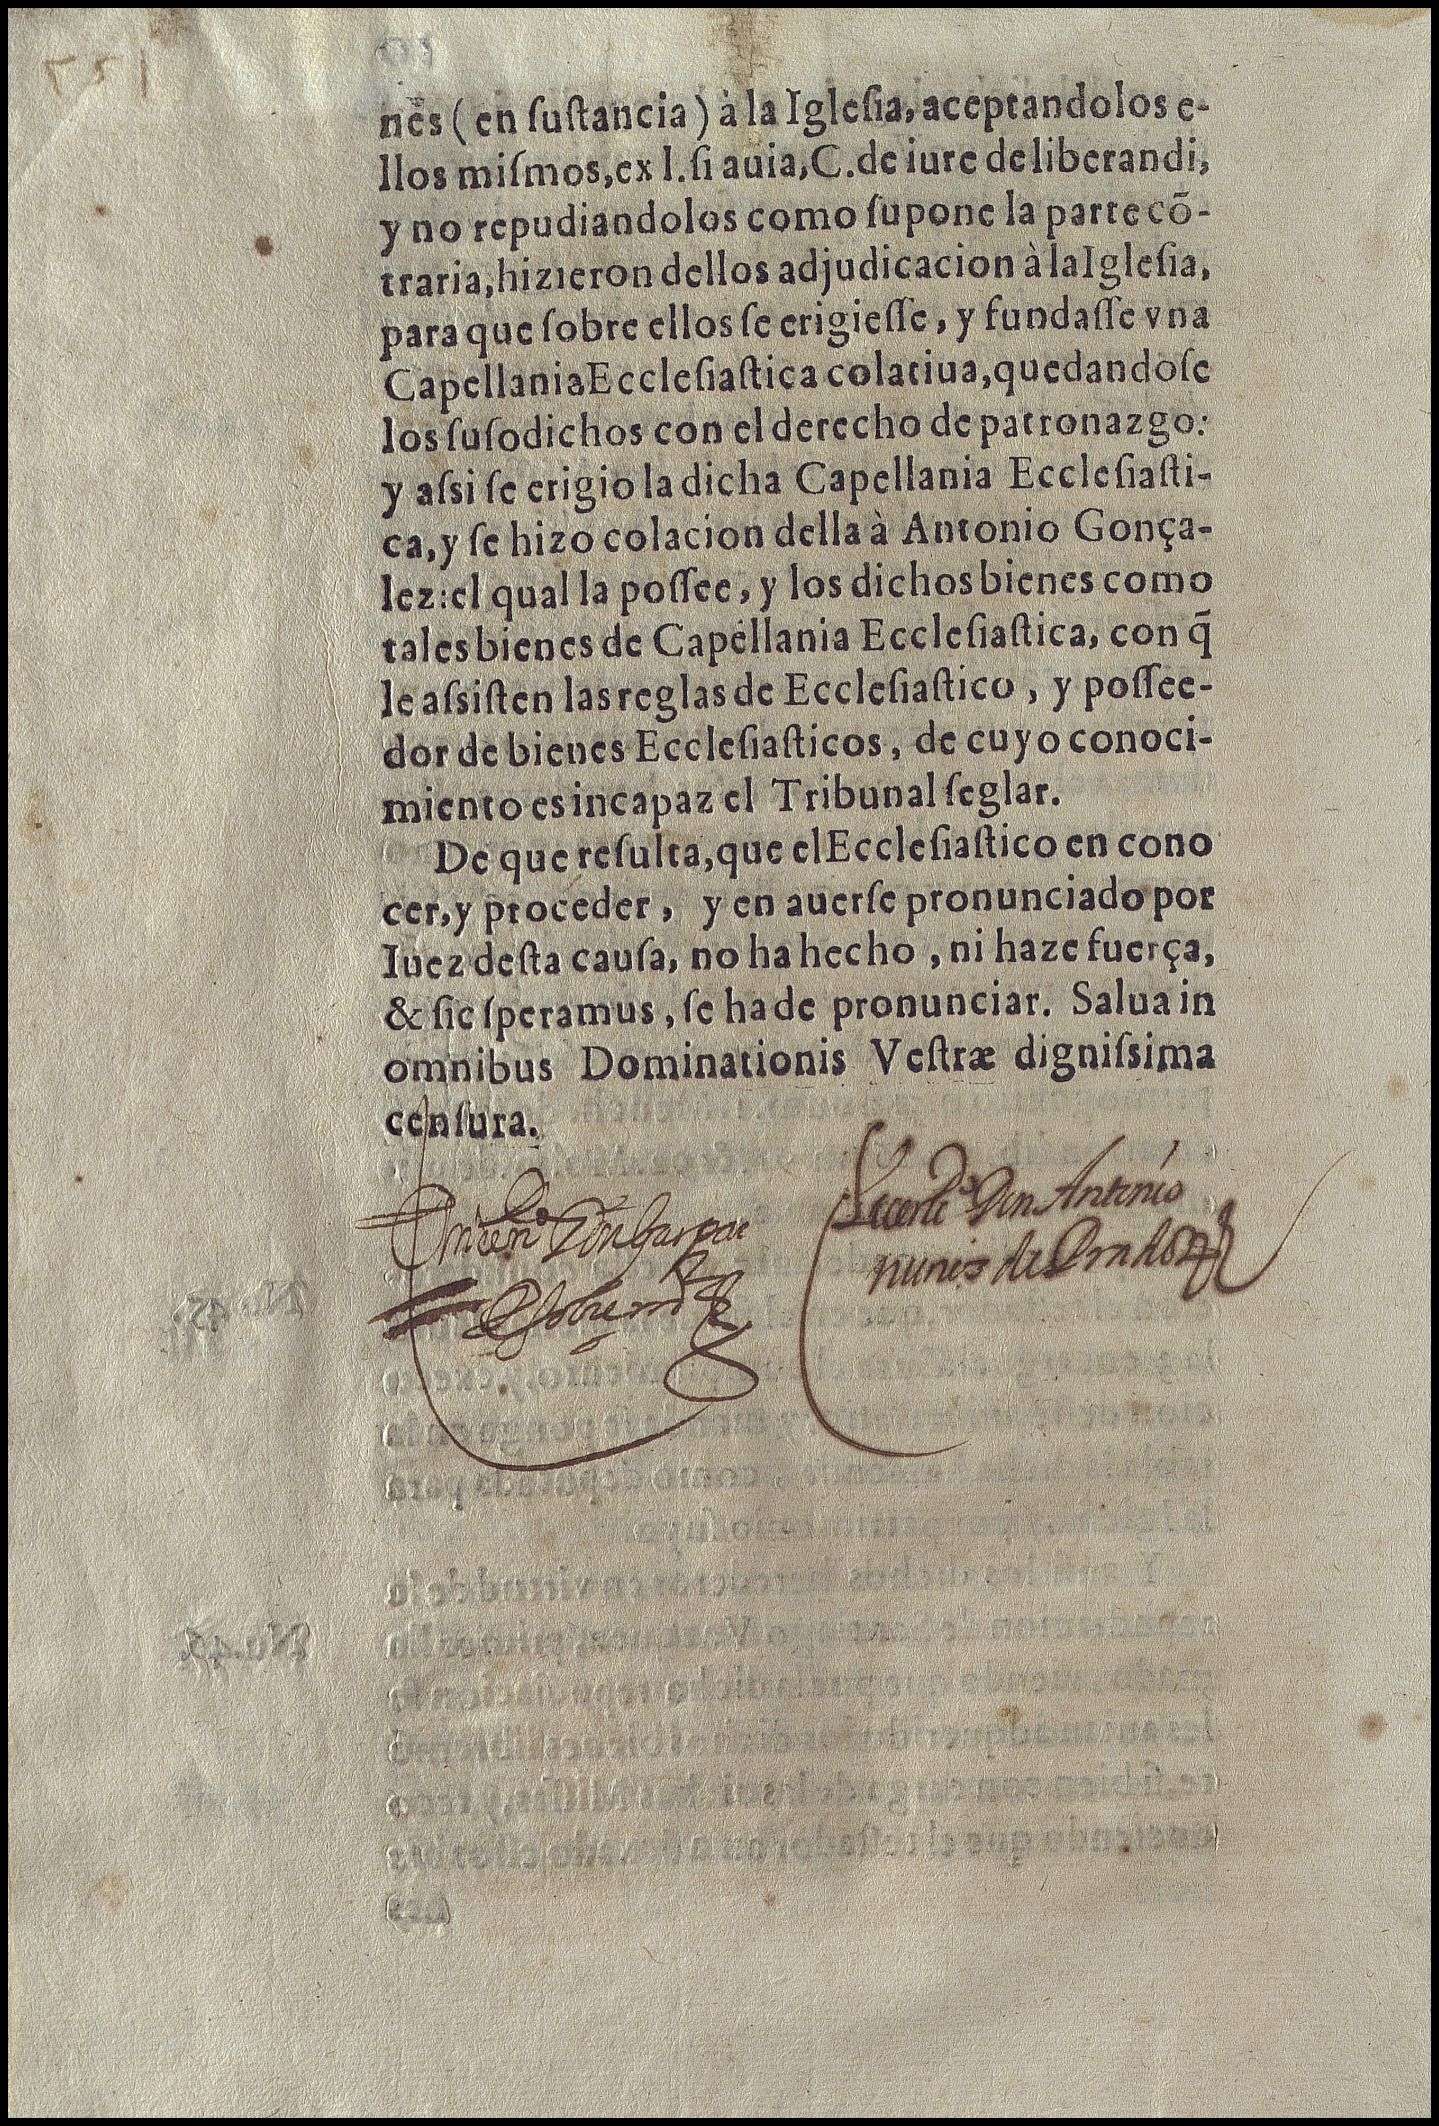 nes (en ſuſtancia) à la Igleſia, aceptandolos e-
llos miſmos, ex l. ſi auia, C. de iure deliberandi,
y no repudiandolos como ſupone la parte cõ-
traria, hizieron dellos adjudicacion à la Igleſia,
para que ſobre ellos ſe erigieſſe, y fundaſſe vna
Capellania Eccleſiaſtica colatiua, quedandoſe
los ſuſodichos con el derecho de patronazgo:
y aſsi ſe erigio la dicha Capellania Eccleſiaſti-
ca, y ſe hizo colacion della à Antonio Gonça-
lez: el qual la poſſee, y los dichos bienes como
tales bienes de Capellania Eccleſiaſtica, con q̃
le aſsiſten las reglas de Eccleſiaſtico, y poſſee-
dor de bienes Eccleſiaſticos, de cuyo conoci-
miento es incapaz el Tribunal ſeglar.
De que reſulta, que el Eccleſiaſtico en cono
cer, y proceder, y en auerſe pronunciado por
Iuez deſta cauſa, no ha hecho, ni haze fuerça,
& ſic ſperamus, ſe ha de pronunciar. Salua in
omnibus Dominationis Veſtræ digniſsima
cenſura.
Don Gaspar
Don Antonio
nunez de Prado